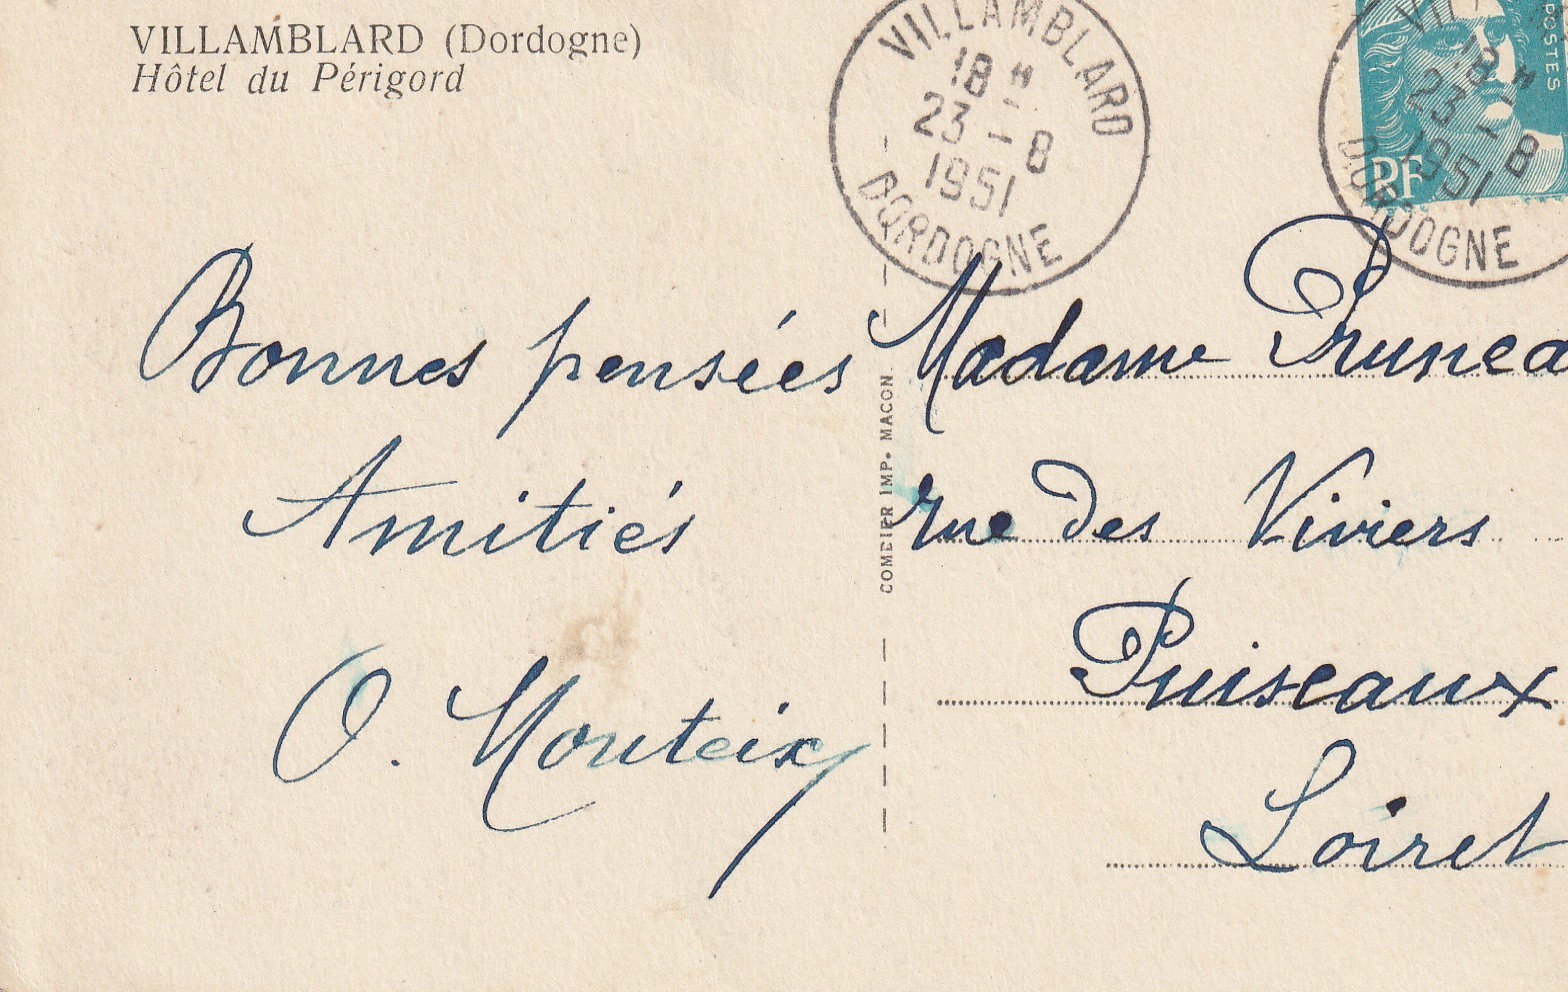 VILLAMBLARD (Dordogne)
Hôtel du Périgord
VILLAMBLARD
18 H
23 - 8
1951
DORDOGNE
POSTES
RF
18 H
23 - 8
1951
DORDOGNE
Bonnes pensées
Amitiés
O. Mouteix
COMBIER IMP. MACON
Madame Prunea
rue des Viviers
Puiseaux
Loiret